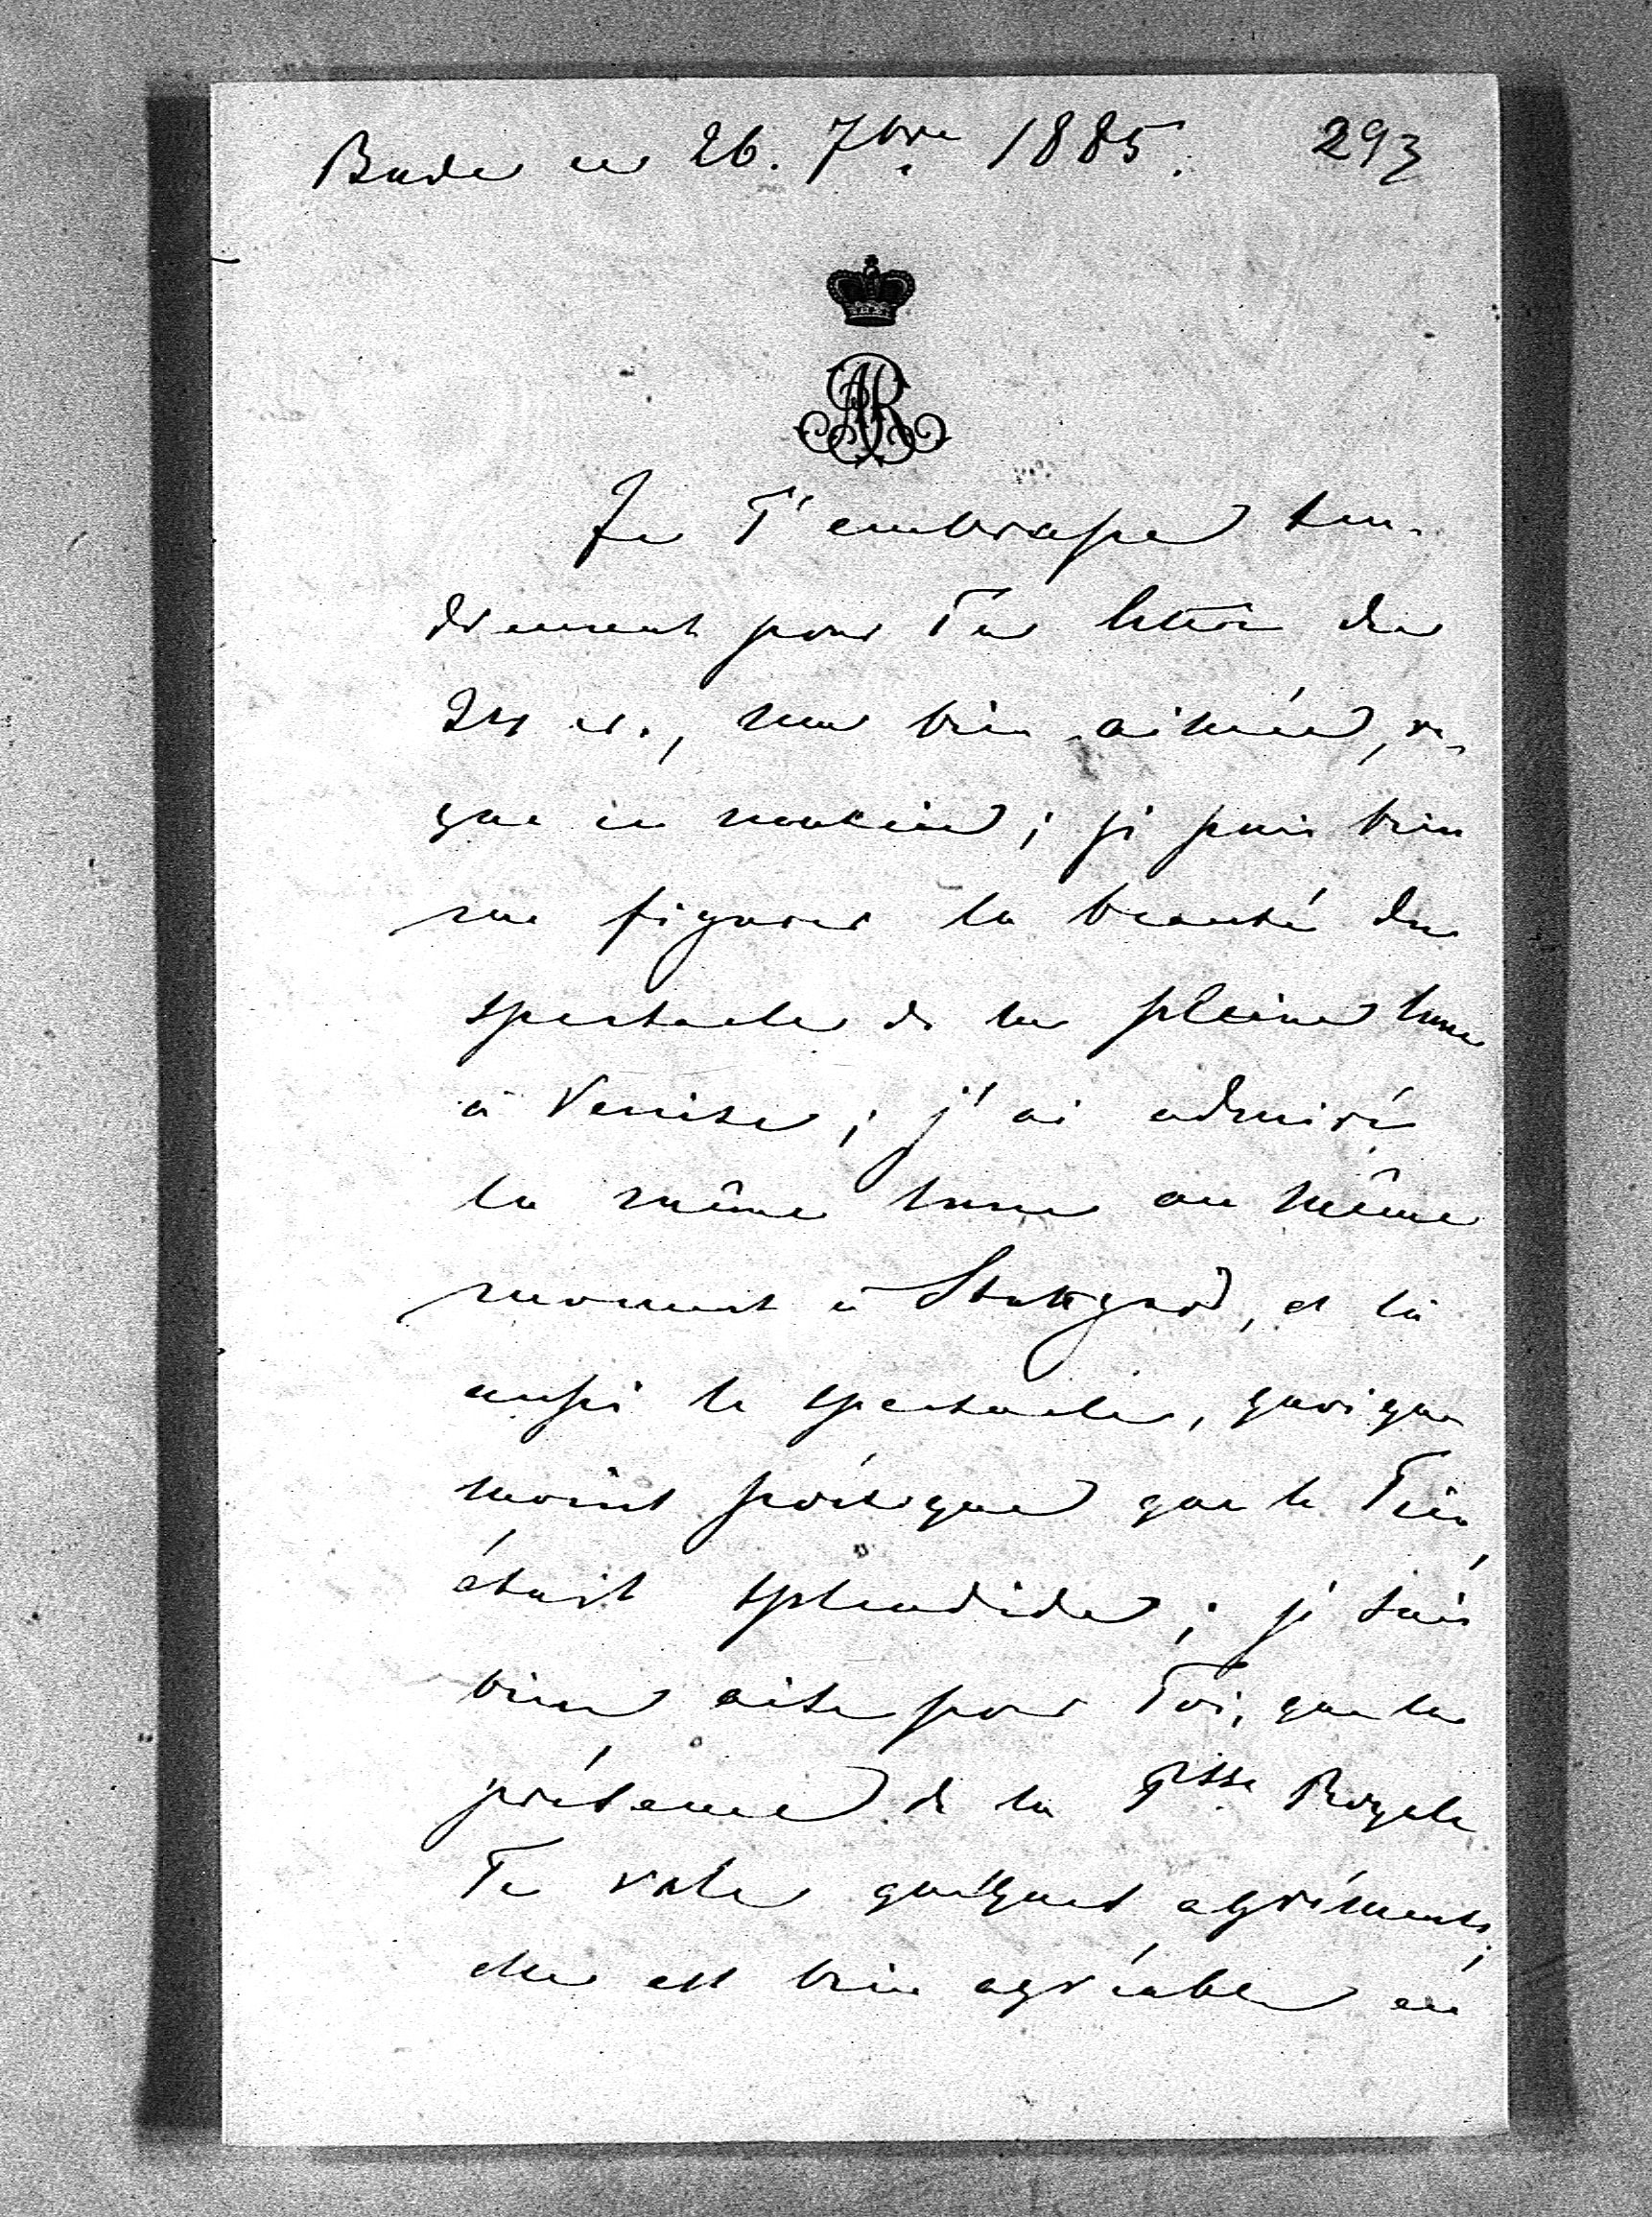 Bade ce 26. 7bre 1885. 293
AR
Je T'embrasse ten-
drement pour Ta lettre du
24 ct., ma bien aimée, re-
çue ce matin ; je puis bien
me figurer la beauté du
spectacle de la pleine lune
à Venise ; j'ai admiré
la même lune au même
moment à Stuttgard, et là
aussi le spectacle, quoique
moins poétique que le Tien,
était splendide ; je suis
bien aise pour Toi, que la
présence de la Psse Royale
Te vale quelques agréments ;
elle est bien agréable en